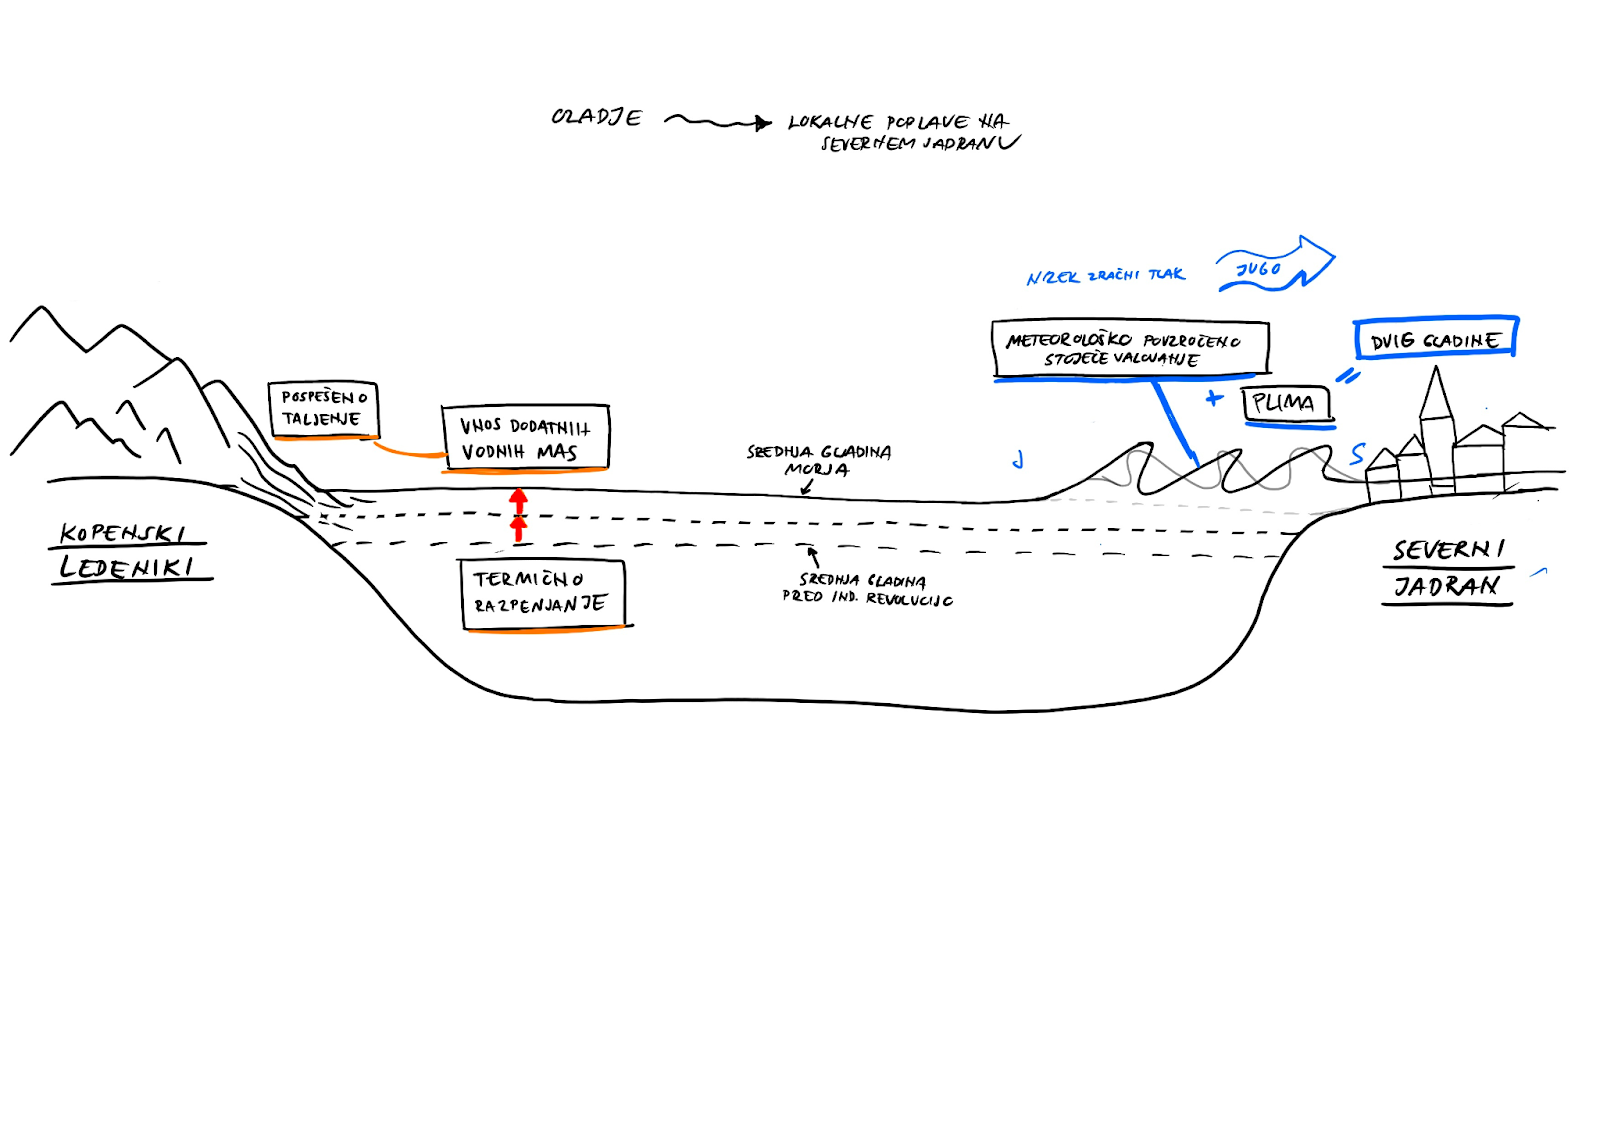 OZADJE
LOKALNE POPLAVE NA
SEVERNEM JADRANU
NIZEK ZRAČNI TLAK
JUGO
METEOROLOŠKO POVZROČENO
STOJEČE VALOVANJE
+
PLIMA
=
DVIG GLADINE
POSPEŠENO
TALJENJE
VNOS DODATNIH
VODNIH MAS
SREDNJA GLADINA
MORJA
J
S
KOPENSKI
LEDENIKI
TERMIČNO
RAZPENJANJE
SREDNJA GLADINA
PRED IND. REVOLUCIJO
SEVERNI
JADRAN